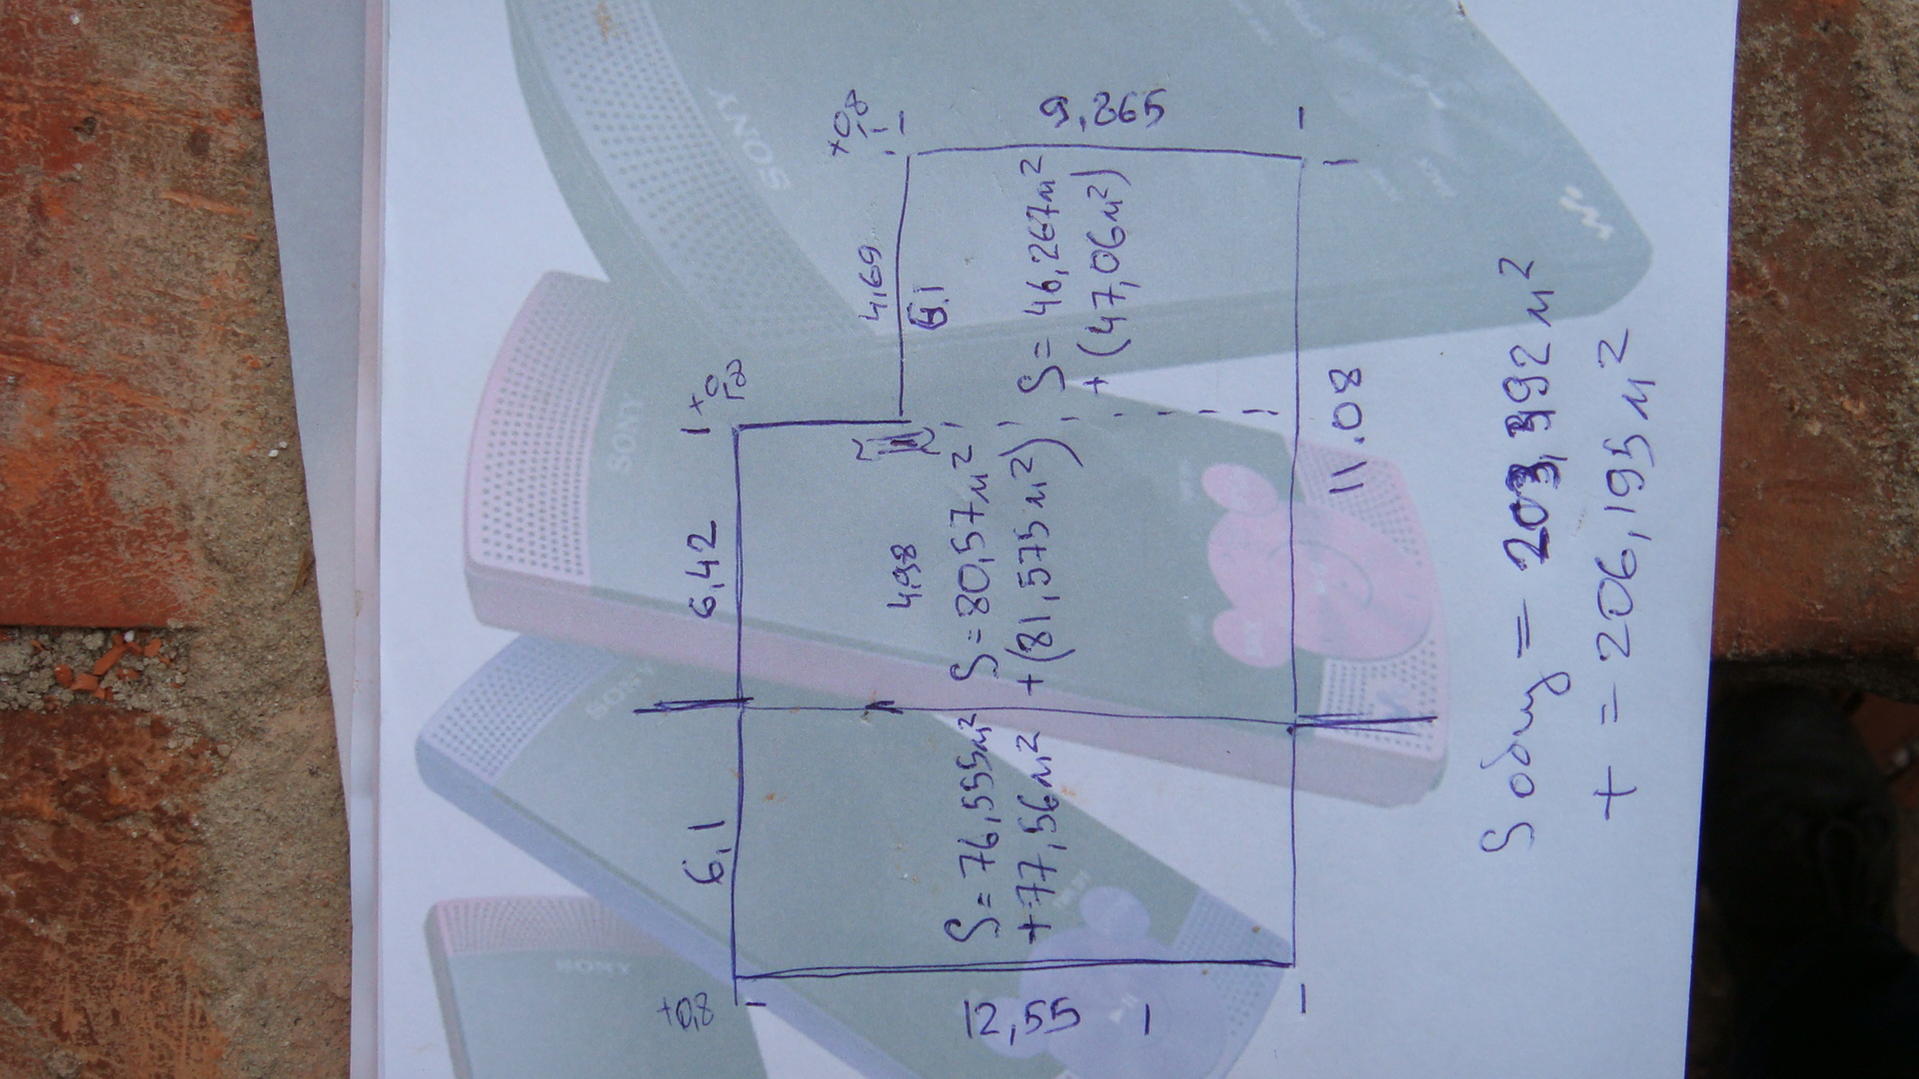 +0,8
9,265
4,69
6.1
S = 46,267м²
+ (47,06м²)
+0,8
6,42
4,98
S = 80,57м²
+ (81,575м²)
11.08
6,1
S = 76,555м²
+ 77,56м²
+0,8
12,55
S общ = 203,392 м²
+ = 206,195 м²
SONY
SONY
SONY
SONY